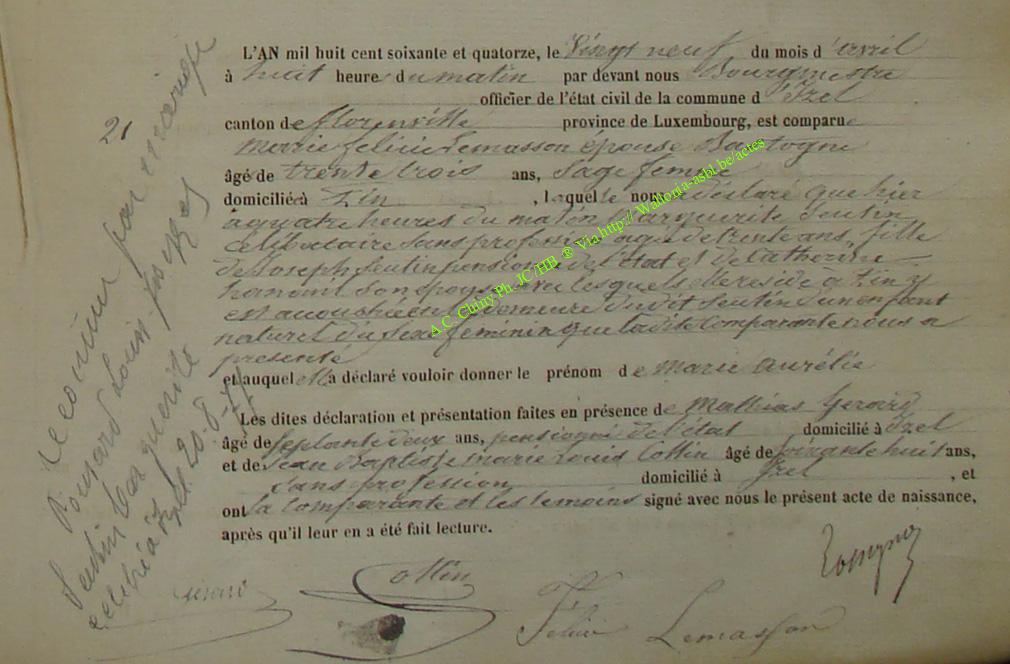 21
L'AN mil huit cent soixante et quatorze, le Vingt neuf du mois d'avril
à huit heure du matin par devant nous Bourgmestre
officier de l'état civil de la commune d'Izel
canton de florenville province de Luxembourg, est comparue
Marie felicie Lemasson épouse Bastogne
âgé de trente trois ans, Sage femme
domicilié à Izin, laquelle nous a déclaré que hier
à quatre heures du matin Marguerite Seutin
celibataire sans profession agée de trente ans, fille
de Joseph Seutin pensionné de l'état et de Catherine
hanont son épouse avec lesquels elle reside à
est accouchée en la demeure du dit Seutin d'un enfant
naturel du sexe feminin que la dite comparante nous a
presenté
et auquel elle a déclaré vouloir donner le prénom de Marie Aurélie
Les dites déclaration et présentation faites en présence de Mathias Gerard
âgé de septante deux ans, pensionné de l'état domicilié à Izel
et de Jean Baptiste Marie Louis Collin âgé de soixante huit ans,
sans profession domicilié à Izel, et
ont la comparante et les temoins signé avec nous le présent acte de naissance,
après qu'il leur en a été fait lecture.
Gerard
Collin
Félicie Lemasson
Reconnue par mariage
Louis
Seutin Marguerite
célébré à Izel le 20-8-77
A.C. Chiny Ph. JC/HB ® Via http://Wallonia-asbl.be/actes